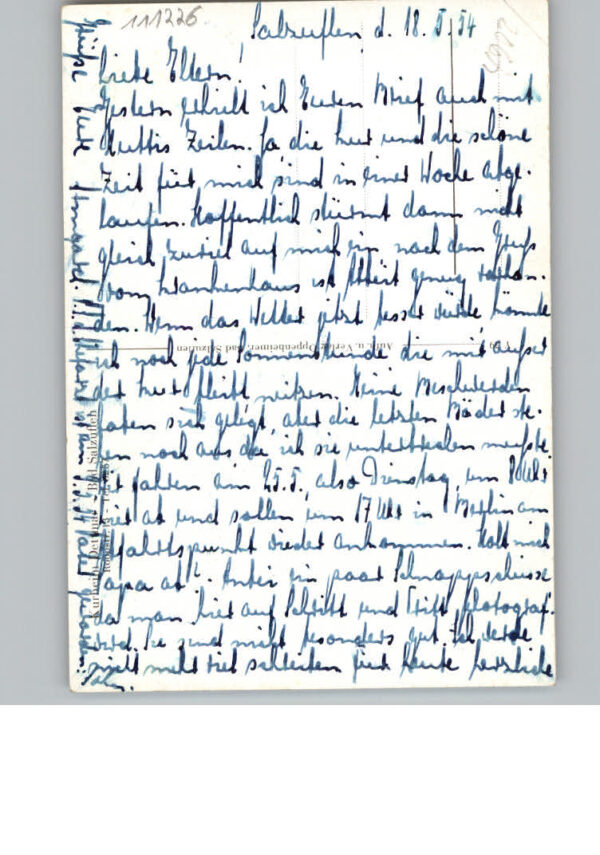 111226
Salzuflen, d. 18. 5. 54
Liebe Eltern!
Gestern erhielt ich Euren Brief auch mit
Muttis Zeilen. Ja die Kur und die schöne
Zeit für mich sind in einer Woche abge-
laufen. Hoffentlich stürmt dann nicht
gleich zuviel auf mich ein nach dem Gruß
vom Krankenhaus ist Arbeit genug vorhan-
den. Wenn das Wetter jetzt besser würde könnte
ich noch jede Sonnenstunde die mir außer
der Kur bleibt nützen. Meine Beschwerden
haben sich gelegt, aber die letzten Bäder ste-
hen noch aus da ich sie unterbrechen mußte.
Wir fahren am 25.5. also Dienstag um Uhr
hier ab und sollen um 17 Uhr in Berlin am
Abfahrtspunkt wieder ankommen. Holt mich
Papa ab? Anbei ein paar Schnappschüsse
da man hier auf Schritt und Tritt fotograf.
wird. Sie sind nicht besonders gut. Ich werde
nicht mehr viel schreiben für heute herzliche
Grüße Eure Annegret.
Kurheim Dettmar - Bad Salzuflen
Aufn. u. Verlag Oppenheimer, Bad Salzuflen